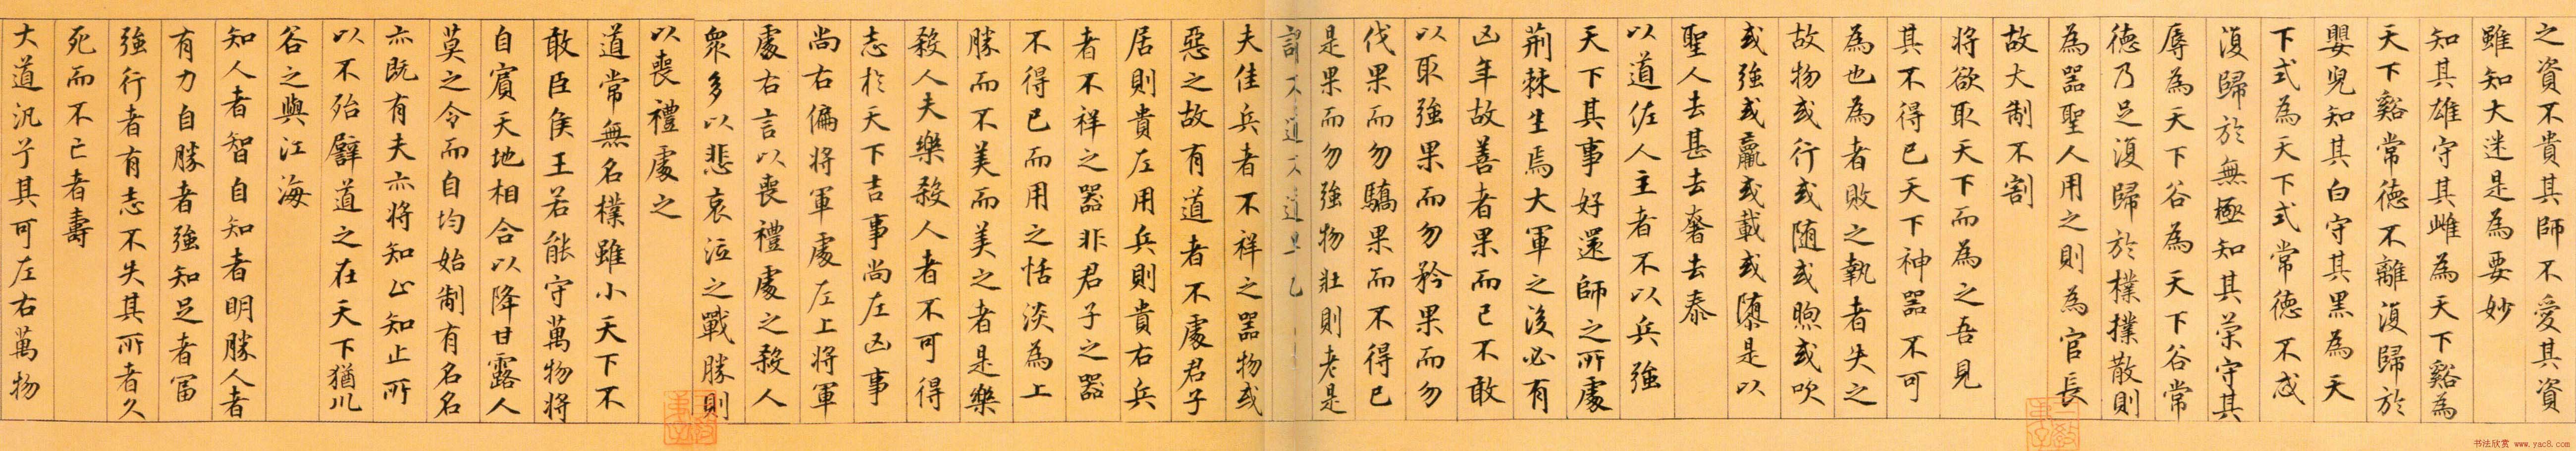 之資不貴其師不愛其資
雖知大迷是為要妙
知其雄守其雌為天下谿為
天下谿常徳不離復歸於
嬰兒知其白守其黑為天
下式為天下式常徳不忒
復歸於無極知其榮守其
辱為天下谷為天下谷常
徳乃足復歸於樸撲散則
為噐聖人用之則為官長
故大制不割
将欲取天下而為之吾見
其不得已天下神噐不可
為也為者敗之執者失之
故物或行或随或煦或吹
或強或羸或載或隳是以
聖人去甚去奢去泰
以道佐人主者不以兵強
天下其事好還師之所處
荆棘生焉大軍之後必有
凶年故善者果而已不敢
以取強果而勿矜果而勿
伐果而勿驕果而不得已
是果而勿強物壯則老是
謂不道不道早已
夫佳兵者不祥之噐物或
惡之故有道者不處君子
居則貴左用兵則貴右兵
者不祥之噐非君子之噐
不得已而用之恬淡為上
勝而不美而美之者是樂
殺人夫樂殺人者不可得
志於天下吉事尚左凶事
尚右偏将軍處左上将軍
處右言以喪禮處之殺人
衆多以悲哀泣之戰勝則
以喪禮處之
道常無名樸雖小天下不
敢臣侯王若能守萬物将
自賓天地相合以降甘露人
莫之令而自均始制有名名
亦既有夫亦将知止知止所
以不殆譬道之在天下猶川
谷之與江海
知人者智自知者明勝人者
有力自勝者強知足者富
強行者有志不失其所者久
死而不亡者壽
大道汎兮其可左右萬物
书法欣赏 www.yac8.com